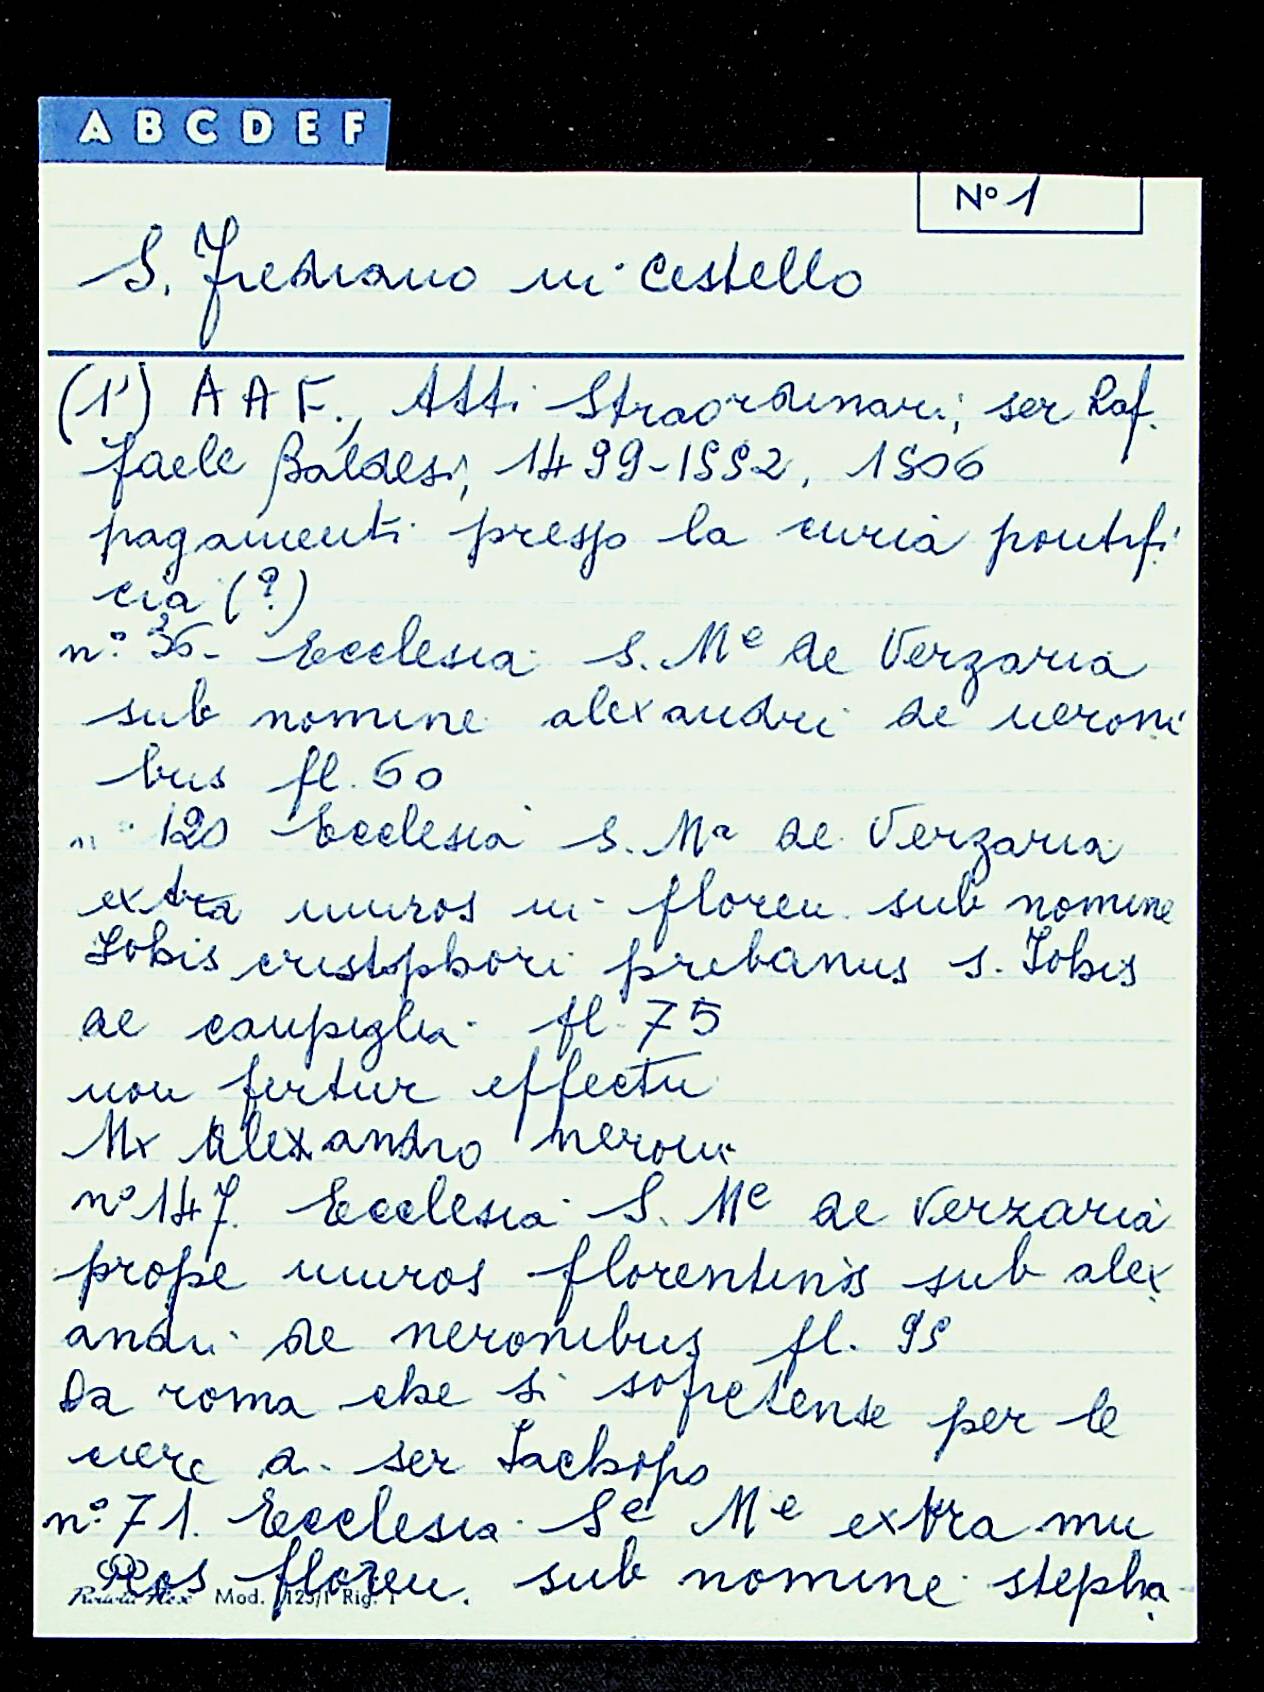 A B C D E F
Nº 1
S. Frediano in Cestello
(1') A A F., Atti Straordinari, ser Raf.
faele Baldesi, 1499-1552, 1506
pagamenti presso la curia pontifi
cia (?)
n° 36- Ecclesia S. Me de Verzaria
sub nomine alexandri de neroni
bus fl. 60
n° 120 Ecclesia S. Ma de Verzaria
extra muros in floren. sub nomine
Johis cristophori prebanus s. Johis
de campiglia fl. 75
non fertur effectu
Mx Alexandro neroni
n° 147. Ecclesia S. Me de Verzaria
prope muros florentinis sub alex
andri de neronibus fl. 95
Da roma che si per le
a ser Jachopo
n° 71. Ecclesia Se Me extra mu
ros floren. sub nomine stepha
Mod. 125/1 Rig. 1